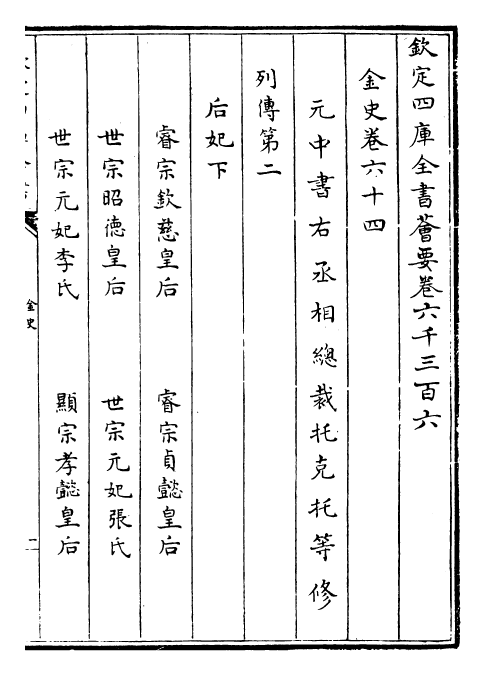 欽定四庫全書薈要卷六千三百六
金史卷六十四
元中書右丞相總裁托克托等修
列傳第二
后妃下
睿宗欽慈皇后 睿宗貞懿皇后
世宗昭德皇后 世宗元妃張氏
世宗元妃李氏 顯宗孝懿皇后
金史